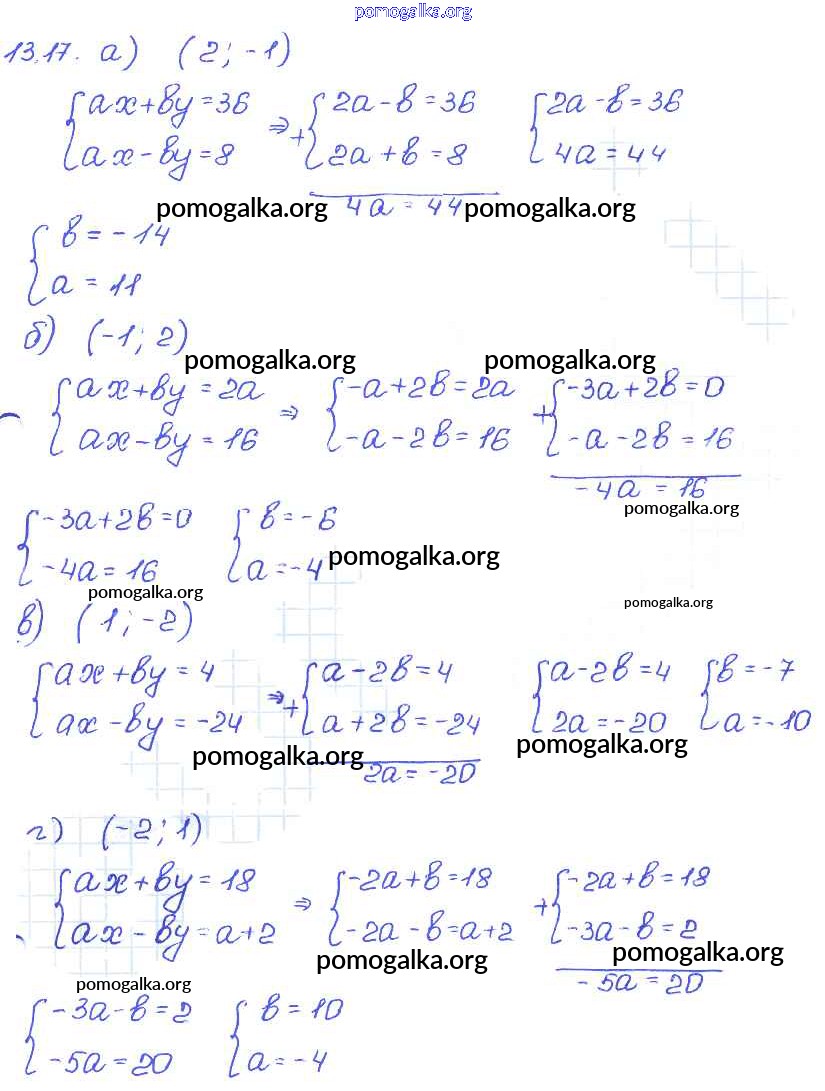 pomogalka.org
13.17. а) (2; -1)
{ax+by=36 ⇒ +{2a-b=36 {2a-b=36
{ax-by=8 {2a+b=8 {4a=44
4a=44
pomogalka.org pomogalka.org
{b=-14
{a=11
б) (-1; 2)
pomogalka.org pomogalka.org
{ax+by=2a ⇒ {-a+2b=2a +{-3a+2b=0
{ax-by=16 {-a-2b=16 {-a-2b=16
-4a=16
pomogalka.org
{-3a+2b=0 {b=-6
{-4a=16 {a=-4
pomogalka.org
pomogalka.org
pomogalka.org
в) (1; -2)
{ax+by=4 ⇒ +{a-2b=4 {a-2b=4 {b=-7
{ax-by=-24 {a+2b=-24 {2a=-20 {a=-10
pomogalka.org pomogalka.org
2a=-20
г) (-2; 1)
{ax+by=18 ⇒ {-2a+b=18 +{-2a+b=18
{ax-by=a+2 {-2a-b=a+2 {-3a-b=2
pomogalka.org pomogalka.org
-5a=20
pomogalka.org
{-3a-b=2 {b=10
{-5a=20 {a=-4